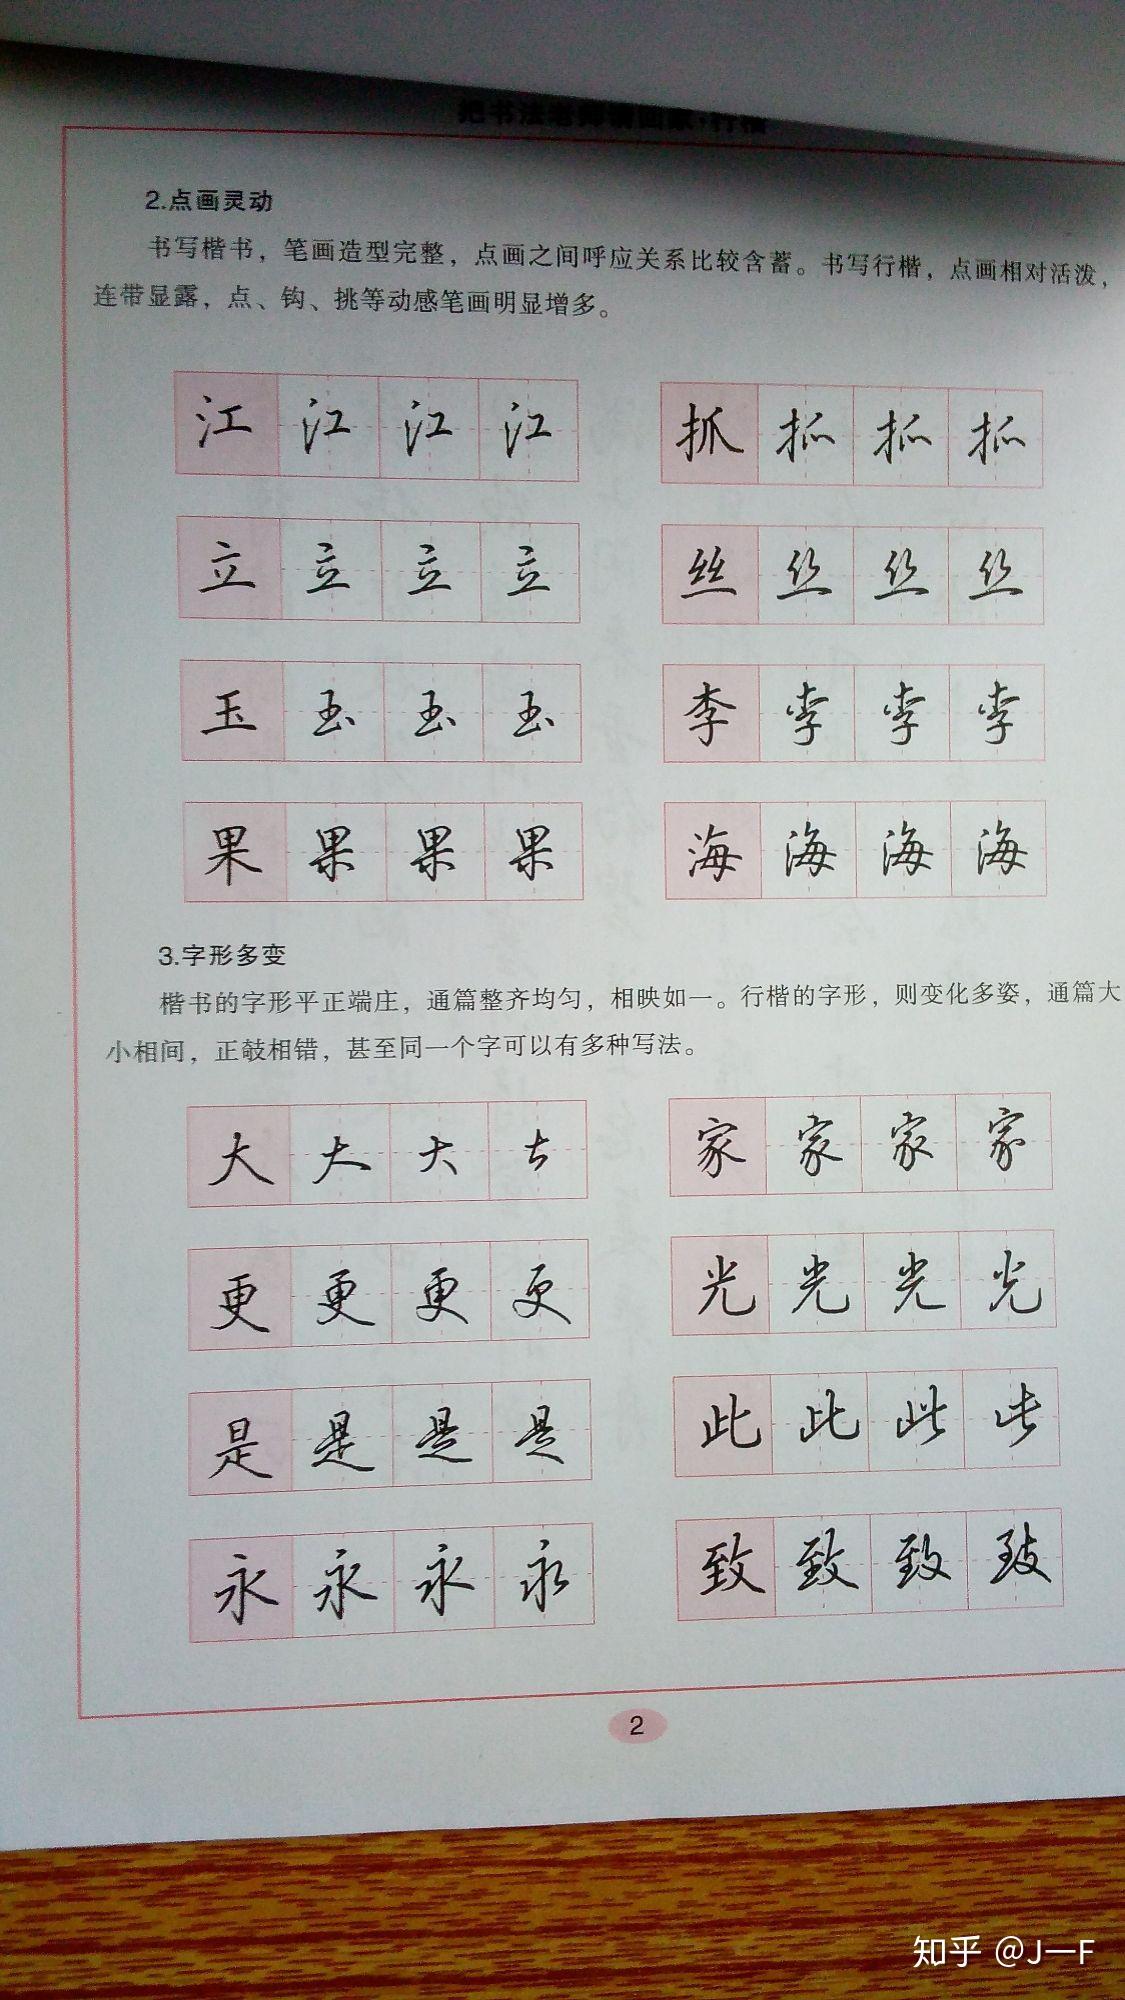 把书法老师请回家·行楷
2.点画灵动
书写楷书，笔画造型完整，点画之间呼应关系比较含蓄。书写行楷，点画相对活泼，
连带显露，点、钩、挑等动感笔画明显增多。
江 江 江 江 抓 抓 抓 抓
立 立 立 立 丝 丝 丝 丝
玉 玉 玉 玉 李 李 李 李
果 果 果 果 海 海 海 海
3.字形多变
楷书的字形平正端庄，通篇整齐均匀，相映如一。行楷的字形，则变化多姿，通篇大
小相间，正攲相错，甚至同一个字可以有多种写法。
大 大 大 大 家 家 家 家
更 更 更 更 光 光 光 光
是 是 是 是 此 此 此 此
永 永 永 永 致 致 致 致
2
知乎 @J—F